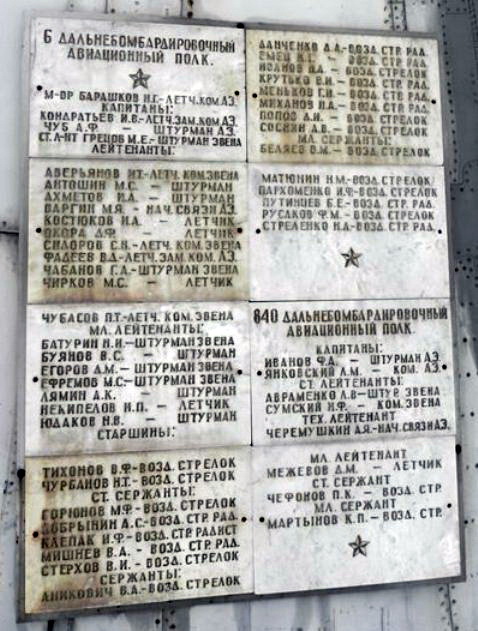 6 ДАЛЬНЕБОМБАРДИРОВОЧНЫЙ
АВИАЦИОННЫЙ ПОЛК.
М-ОР БАРАШКОВ Н.Г.-ЛЕТЧ.КОМ.АЭ.
КАПИТАНЫ:
КОНДРАТЬЕВ И.В.-ЛЕТЧ.ЗАМ.КОМ.АЭ.
ЧУБ А.Ф. — ШТУРМАН АЭ.
СТ.Л-НТ ГРЕЦОВ М.Е.-ШТУРМАН ЗВЕНА
ЛЕЙТЕНАНТЫ:
АВЕРЬЯНОВ И.Т.-ЛЕТЧ. КОМ.ЗВЕНА
АНТОШИН М.С. — ШТУРМАН
АХМЕТОВ И.А. — ШТУРМАН
ВАРГИН М.Я. - НАЧ. СВЯЗИ АЭ.
КОСТЮКОВ Н.А. — ЛЕТЧИК
ОКОРА Д.Ф. — ЛЕТЧИК
СИДОРОВ С.Н.-ЛЕТЧ. КОМ. ЗВЕНА
ФАДЕЕВ В.Д.-ЛЕТЧ. ЗАМ. КОМ. АЭ.
ЧАБАНОВ Г.Л.-ШТУРМАН ЗВЕНА
ЧИРКОВ М.С. — ЛЕТЧИК
ЧУБАСОВ П.Т.-ЛЕТЧ. КОМ. ЗВЕНА
МЛ. ЛЕЙТЕНАНТЫ:
БАТУРИН Н.И.-ШТУРМАН ЗВЕНА
БУЯНОВ В.С. — ШТУРМАН
ЕГОРОВ Д.М.-ШТУРМАН ЗВЕНА
ЕФРЕМОВ М.С.-ШТУРМАН ЗВЕНА
ЛЯМИН А.К. — ШТУРМАН
НЕКИПЕЛОВ Н.П. — ЛЕТЧИК
ЮДАКОВ Н.В. — ШТУРМАН
СТАРШИНЫ:
ТИХОНОВ В.Ф.-ВОЗД. СТРЕЛОК
ЧУРБАНОВ Н.Т.- ВОЗД. СТРЕЛОК
СТ. СЕРЖАНТЫ:
ГОРЮНОВ М.Ф.- ВОЗД. СТРЕЛОК
ДОБРЫНИН А.С.-ВОЗД. СТР. РАД.
КЛЕПАК И.Ф.-ВОЗД. СТР. РАДИСТ
МИШНЕВ В.А. - ВОЗД. СТР. РАД.
СТЕРХОВ В.И. - ВОЗД. СТРЕЛОК
СЕРЖАНТЫ:
АНИКОВИЧ В.А.-ВОЗД. СТРЕЛОК
ДАНЧЕНКО Д.А.-ВОЗД. СТР. РАД.
ЕМЕЦ - ВОЗД. СТРЕЛОК
ИВАНОВ П.А. - ВОЗД. СТРЕЛОК
КРУТЬКО В.И. - ВОЗД. СТР. РАД.
МЕНЬКОВ Г.И. - ВОЗД. СТР. РАД.
МИХАНОВ П.А. - ВОЗД. СТР. РАД.
ПОПОВ Д.И. - ВОЗД. СТРЕЛОК
СОСНИН Д.В. - ВОЗД. СТРЕЛОК
МЛ. СЕРЖАНТЫ:
БЕЛЯЕВ В.М.- ВОЗД. СТРЕЛОК
МАТЮНИН Н.М.-ВОЗД. СТРЕЛОК
ПАРХОМЕНКО И.Ф-ВОЗД. СТРЕЛОК
ПУТИНЦЕВ Б.Е.-ВОЗД. СТР. РАД.
РУСАКОВ Ф.М. - ВОЗД. СТРЕЛОК
СТРЕЛЕНКО Н.А.-ВОЗД. СТР. РАД.
840 ДАЛЬНЕБОМБАРДИРОВОЧНЫЙ
АВИАЦИОННЫЙ ПОЛК.
КАПИТАНЫ:
ИВАНОВ Ф.А. — ШТУРМАН АЭ.
ЯНКОВСКИЙ Л.М. — КОМ. АЭ.
СТ. ЛЕЙТЕНАНТЫ:
АВРАМЕНКО Л.В-ШТУР. ЗВЕНА
СУМСКИЙ И.Ф. — КОМ.ЗВЕНА
ТЕХ. ЛЕЙТЕНАНТ
ЧЕРЕМУШКИН А.Я.-НАЧ.СВЯЗИ АЭ.
МЛ. ЛЕЙТЕНАНТ
МЕЖЕВОВ Д.М. — ЛЕТЧИК
СТ. СЕРЖАНТ
ЧЕФОНОВ П.К. — ВОЗД. СТР.
МЛ. СЕРЖАНТ
МАРТЫНОВ К.П. — ВОЗД. СТР.